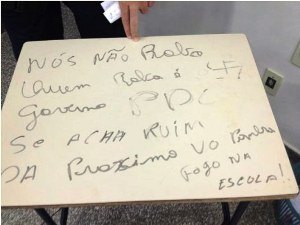 NÓS NÃO Roba
Quem Roba é
Governo PDC
Se ACHA RUIM
DA Proximo VO Bota
Fogo NA
ESCOLA!